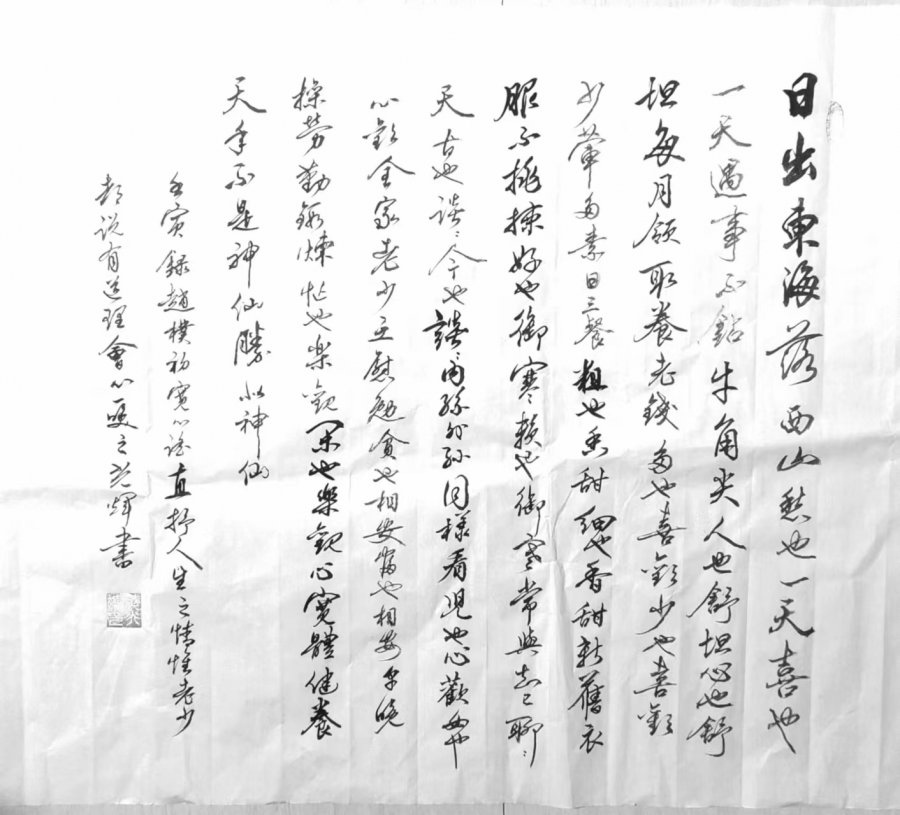 日出東海落西山愁也一天喜也
一天遇事不鉆牛角尖人也舒坦心也舒
坦每月領取養老錢多也喜歡少也喜歡
少葷多素日三餐粗也香甜細也香甜新舊衣
服不挑揀好也御寒赖也御寒常與知己聊聊
天古也談談今也談談內孫外孫同樣看兒也心歡女也
心歡全家老少互慰勉貧也相安富也相安早晚
操勞勤鍛煉忙也樂觀闲也樂觀心寬體健養
天年不是神仙勝似神仙
壬寅錄趙樸初寬心謠直抒人生之情惟老少
都說有道理會心書之光輝書